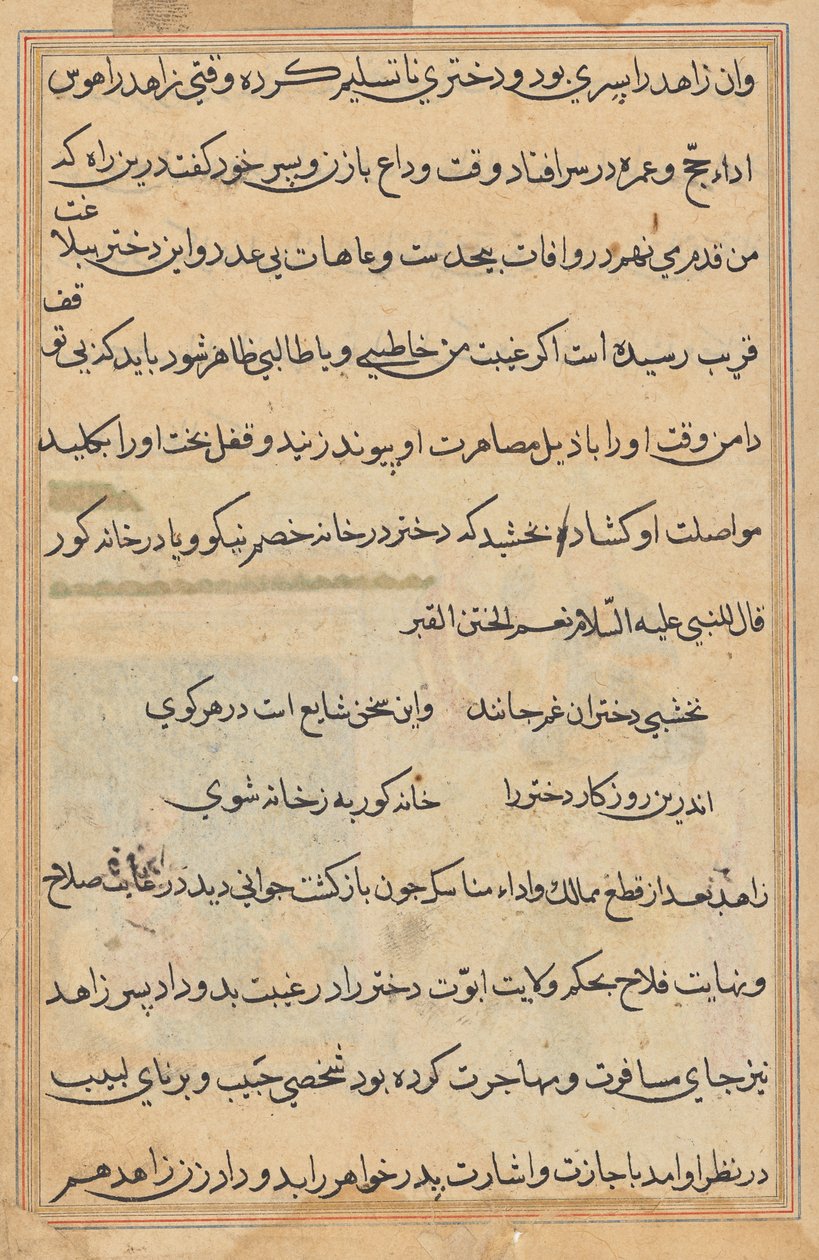 وان زاهد را پسري بود و دختري نا تسليم كرده وقتي زاهد را هوس
اداء حجّ و عمره در سر افتاد وقت وداع با زن و پسر خود كفت درين راه كه
من قدم مي نهم درو افات بيحدست و عاهات بي عدد و اين دختر ببلاغت
قريب رسيده است اكر غيبت من خاطبي و يا طالبي ظاهر شود بايد كه بي توقف
دامن وقت او را باذيل مصاهرت او پيوند زنيد و قفل بخت او را بكليد
مواصلت او كشاده بخشيد كه دختر در خانه خصم نيكو و يا در خانه كور
قال للنبي عليه السّلام نعم الختن القبر
نخشبي دختران غم جانند واين سخن شايع است در هر كوي
اندرين روزكار دختر را خانه كور به ز خانه شوي
زاهد بعد از قطع ممالك و اداء مناسك جون باز كشت جواني ديد در غايت صلاح
و نهايت فلاح بحكم ولايت ابوّت دختر را در غيبت بدو داد پسر زاهد
نيز جاي مسافرت و مهاجرت كرده بود شخصي حَبيب و برناي لبيب
در نظر او امد با جازت و اشارت پدر خواهر را بدو داد زن زاهد هم